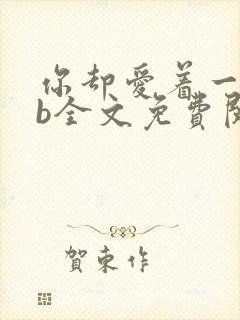 你却爱着一
b全文免費閱
賀東作